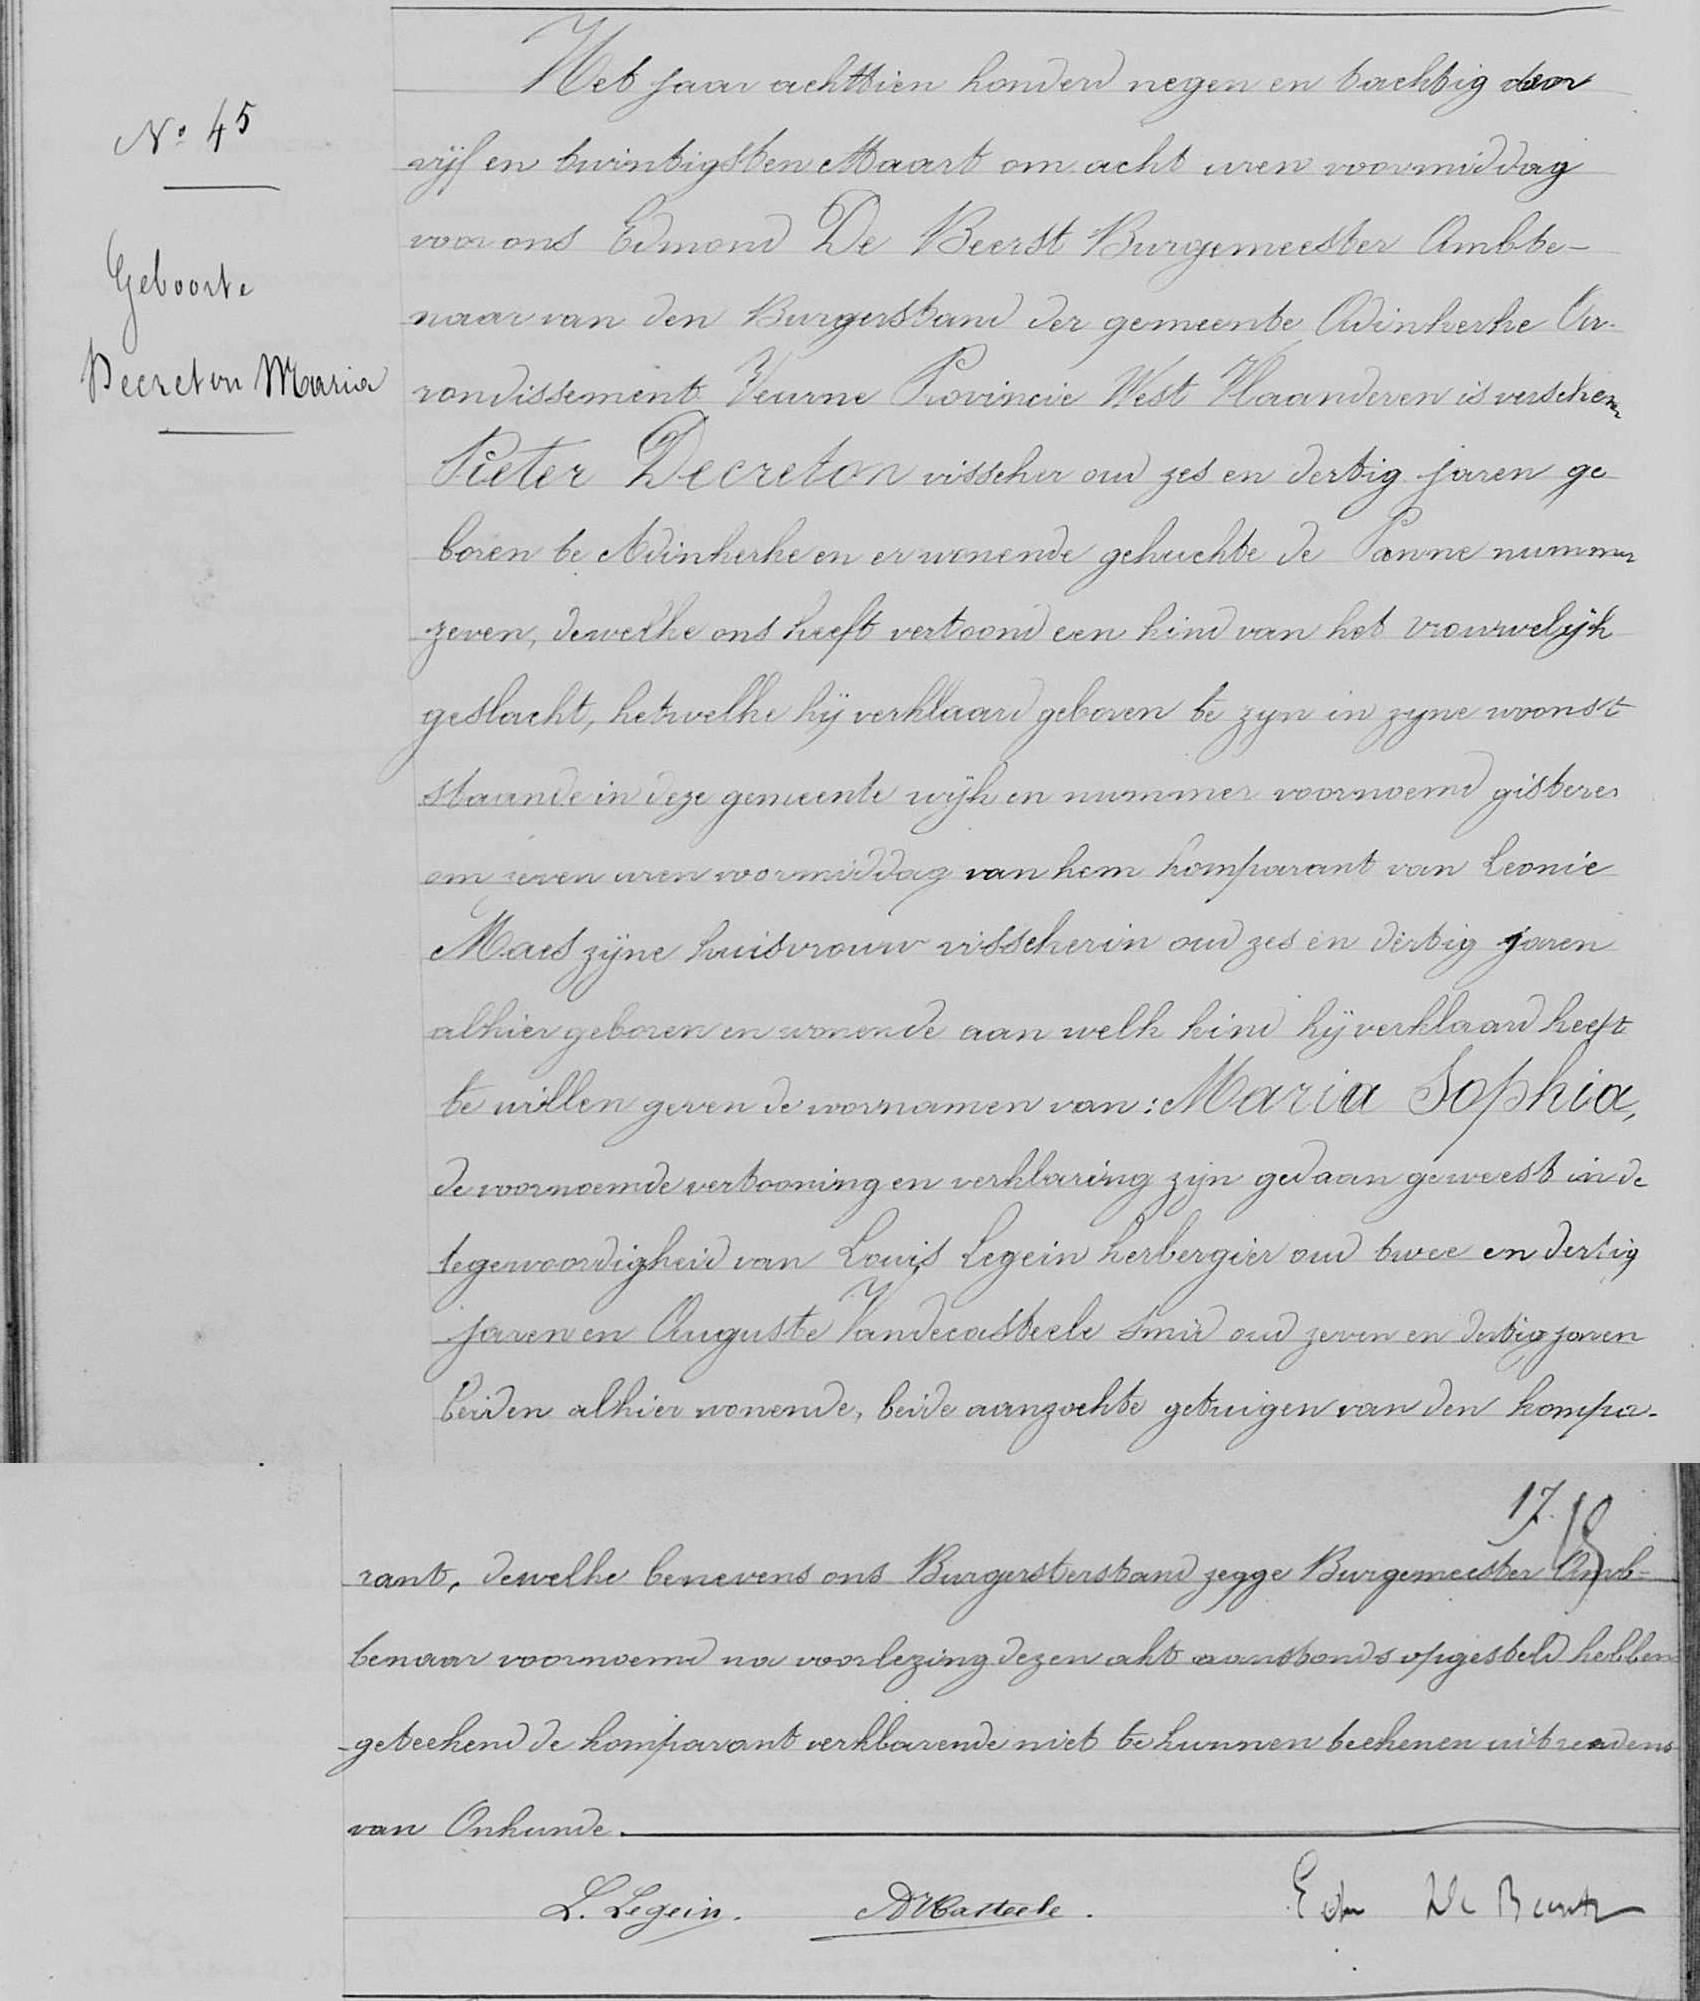 Nº 45
Geboorte
Decreton Maria
Het jaar achttien honderd negen en tachtig den
vijf en twintigsten Maart om acht uren voormiddag
voor ons Edmond De Beerst Burgemeester Ambte-
naar van den Burgerstand der gemeente Adinkerke Ar-
rondissement Veurne Provincie West Vlaanderen is verschenen
Pieter Decreton visscher oud zes en dertig jaren ge
boren te Adinkerke en er wonende gehuchte de Panne nummer
zeven, dewelke ons heeft vertoond een kind van het vrouwelijk
geslacht, hetwelke hij verklaard geboren te zyn in zyne woonst
staande in deze gemeente wijk en nummer voornoemd gisteren
om zeven uren voormiddag van hem komparant van Leonie
Maes zijne huisvrouw visscherin oud zes en dertig jaren
alhier geboren en wonende aan welk kind hij verklaard heeft
te willen geven de voornamen van: Maria Sophia,
de voornoemde vertooning en verklaring zijn gedaan geweest in de
tegenwoordigheid van Louis Legein herbergier oud twee en dertig
jaren en Auguste Vandecasteele smid oud zeven en dertig jaren
beiden alhier wonende, beide aanzochte getuigen van den kompa-
17. 18
rant, dewelke benevens ons Burgersterstand zegge Burgemeester Amb-
tenaar voornoemd na voorlezing dezen akt aanstonds opgesteld hebben
geteekend de komparant verklarende niet te kunnen teekenen uit redens
van Onkunde.
L. Legein. AVCasteele. Edm De Beerst